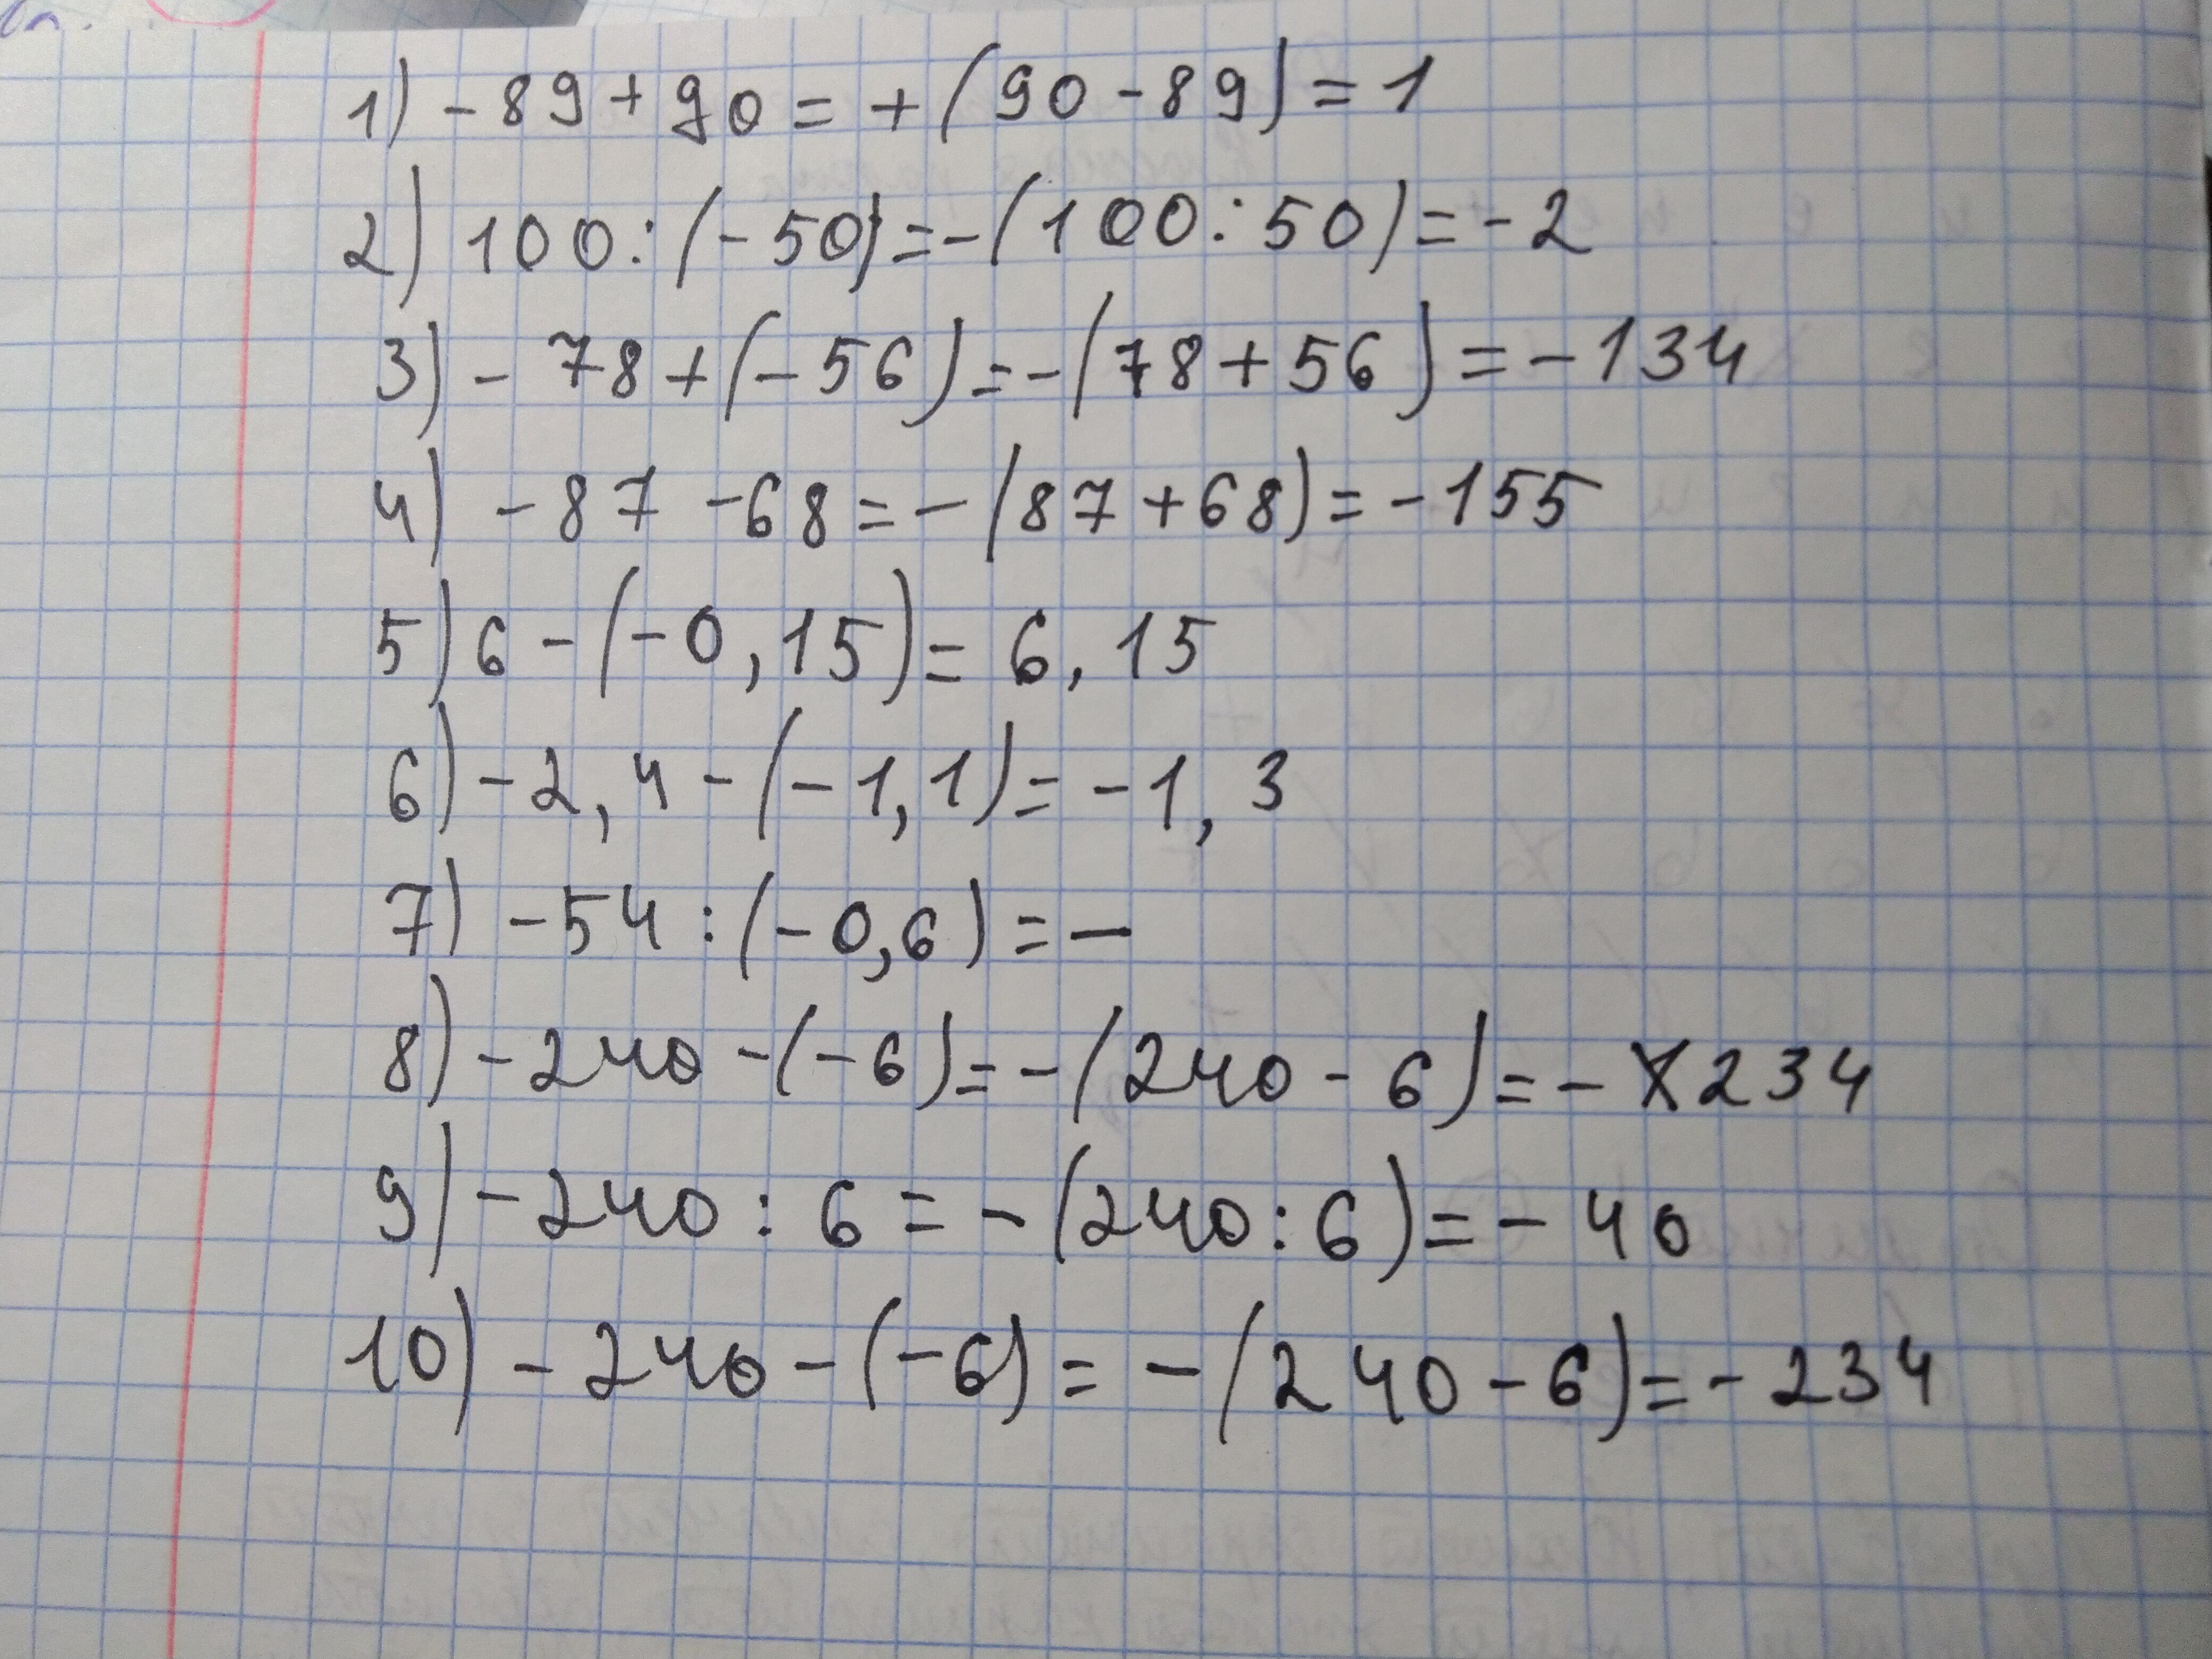 1) -89+90=+(90-89)=1
2) 100:(-50)=-(100:50)=-2
3) -78+(-56)=-(78+56)=-134
4) -87-68=-(87+68)=-155
5) 6-(-0,15)=6,15
6) -2,4-(-1,1)=-1,3
7) -54:(-0,6)=-
8) -240-(-6)=-(240-6)=-234
9) -240:6=-(240:6)=-40
10) -240-(-6)=-(240-6)=-234